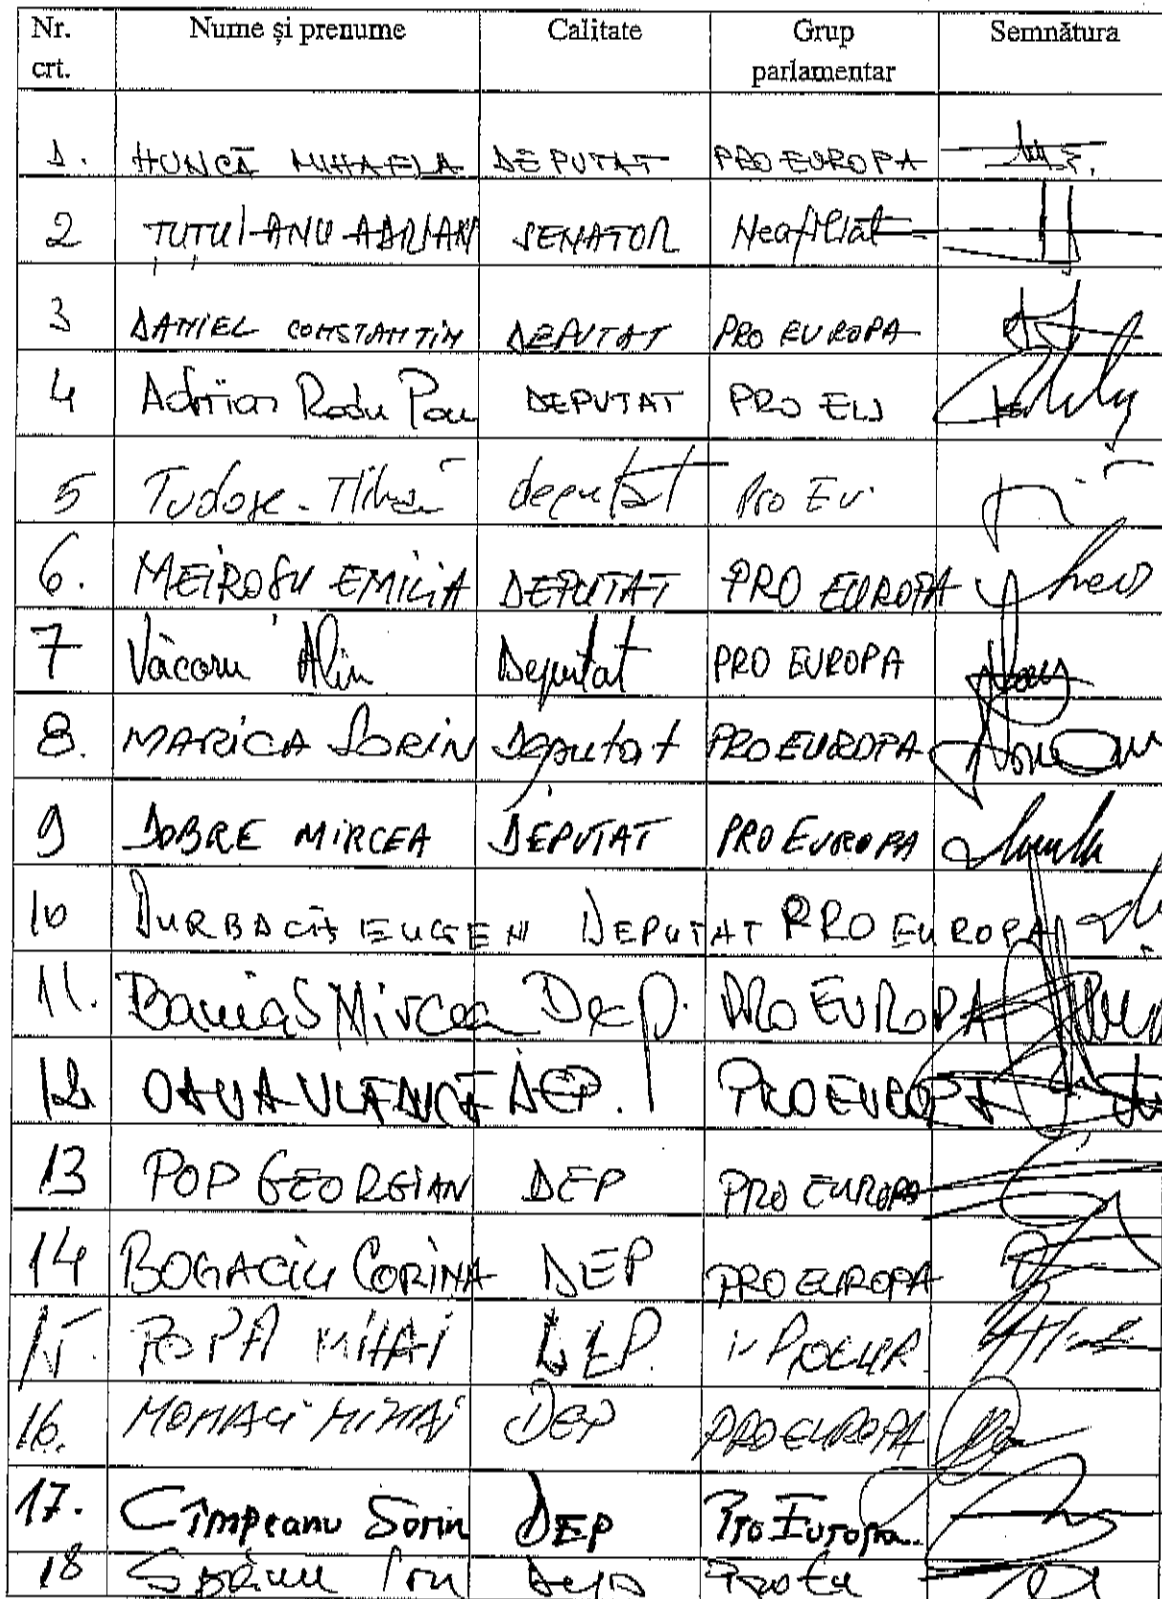 Nr. crt. Nume și prenume Calitate Grup parlamentar Semnătura
1. HUNCĂ MIHAELA DEPUTAT PRO EUROPA
2 ȚUȚUIANU ADRIAN SENATOR Neafiliat
3 DANIEL CONSTANTIN DEPUTAT PRO EUROPA
4 Adrian Radu Pau DEPUTAT PRO EU
5 Tudose deputat Pro Eu
6. MEIROSU EMILIA DEPUTAT PRO EUROPA
7 Văcaru Alin Deputat PRO EUROPA
8. MARICA SORIN Deputat PRO EUROPA
9 DOBRE MIRCEA DEPUTAT PRO EUROPA
10 DURBACĂ EUGEN DEPUTAT PRO EUROPA
11. Banias Mircea Dep. PRO EUROPA
12 OANA VLĂDUCĂ DEP. PRO EUROPA
13 POP GEORGIAN DEP PRO EUROPA
14 BOGACIU CORINA DEP PRO EUROPA
15. POPA MIHAI DEP.
16. MIHAI DEP PRO EUROPA
17. Cîmpeanu Sorin DEP Pro Europa
18 Spânu Ion Dep Pro Eu